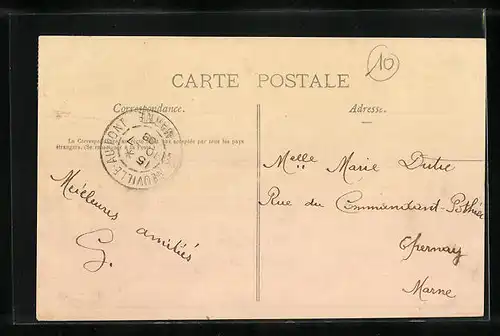 10
CARTE POSTALE
Correspondance.
Adresse.
La Correspondance au recto n'est pas acceptée par tous les pays
étrangers. (Se renseigner à la Poste.)
LA NEUVILLE-AU-PONT MARNE
15
Melle Marie Dutre
Rue du Commandant-Pothier
Epernay
Marne
Meilleures
amitiés
G.